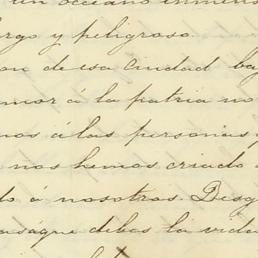 un océano inmens
rgo y peligroso.
on de esa ciudad ba
mor á la patria no
nos á las personas y
nos hemos criado
do á nosotros. Desg
que debas la vida